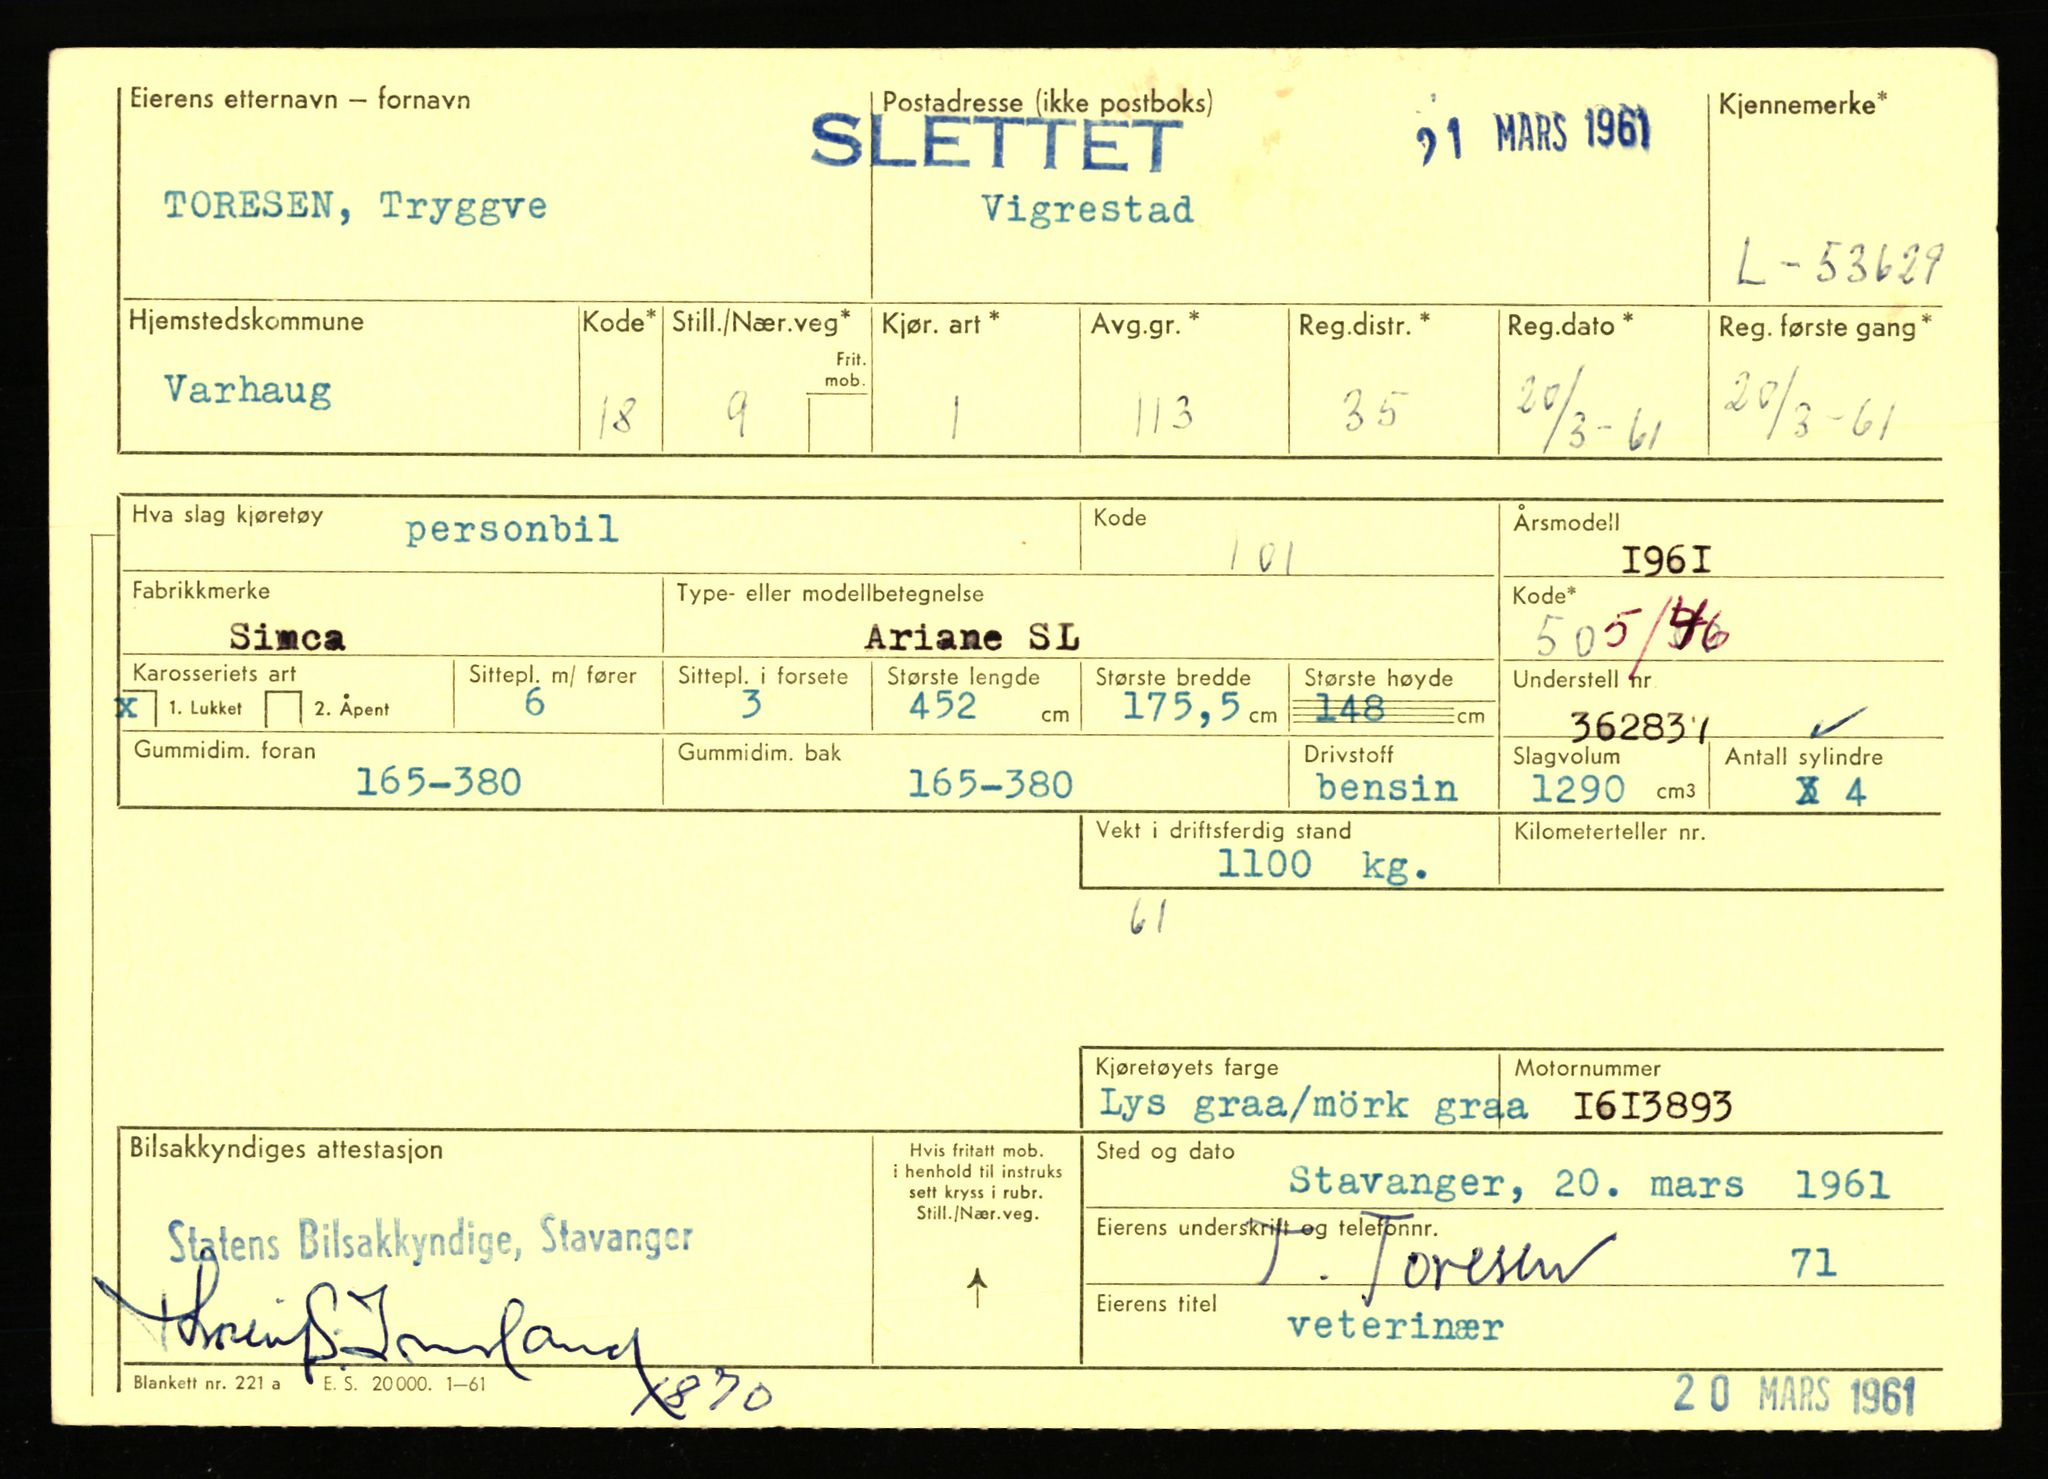 Eierens etternavn – fornavn
Postadresse (ikke postboks)
Kjennemerke*
SLETTET
MARS 1961
TORESEN, Tryggve
Vigrestad
L - 53629
Hjemstedskommune
Kode*
Still./Nær.veg*
Kjør. art *
Avg.gr. *
Reg.distr. *
Reg.dato *
Reg. første gang *
Frit. mob.
Varhaug
18
9
1
113
35
20/3 - 61
20/3 - 61
Hva slag kjøretøy
personbil
Kode
101
Årsmodell
I96I
Fabrikkmerke
Simca
Type- eller modellbetegnelse
Ariane SL
Kode*
Karosseriets art
x 1. Lukket 2. Åpent
Sittepl. m/ fører
6
Sittepl. i forsete
3
Største lengde
452 cm
Største bredde
175,5 cm
Største høyde
148 cm
Understell nr
Gummidim. foran
165-380
Gummidim. bak
165-380
Drivstoff
bensin
Slagvolum
1290 cm3
Antall sylindre
4
Vekt i driftsferdig stand
1100 kg.
Kilometerteller nr.
61
Kjøretøyets farge
Lys graa/mörk graa
Motornummer
I6I3893
Bilsakkyndiges attestasjon
Statens Bilsakkyndige, Stavanger
Hvis fritatt mob.
i henhold til instruks
sett kryss i rubr.
Still./Nær.veg.
Sted og dato
Stavanger, 20. mars 1961
Eierens underskrift og telefonnr.
T. Toresen
71
Eierens titel
veterinær
Blankett nr. 221 a E. S. 20000. 1–61
20 MARS 1961